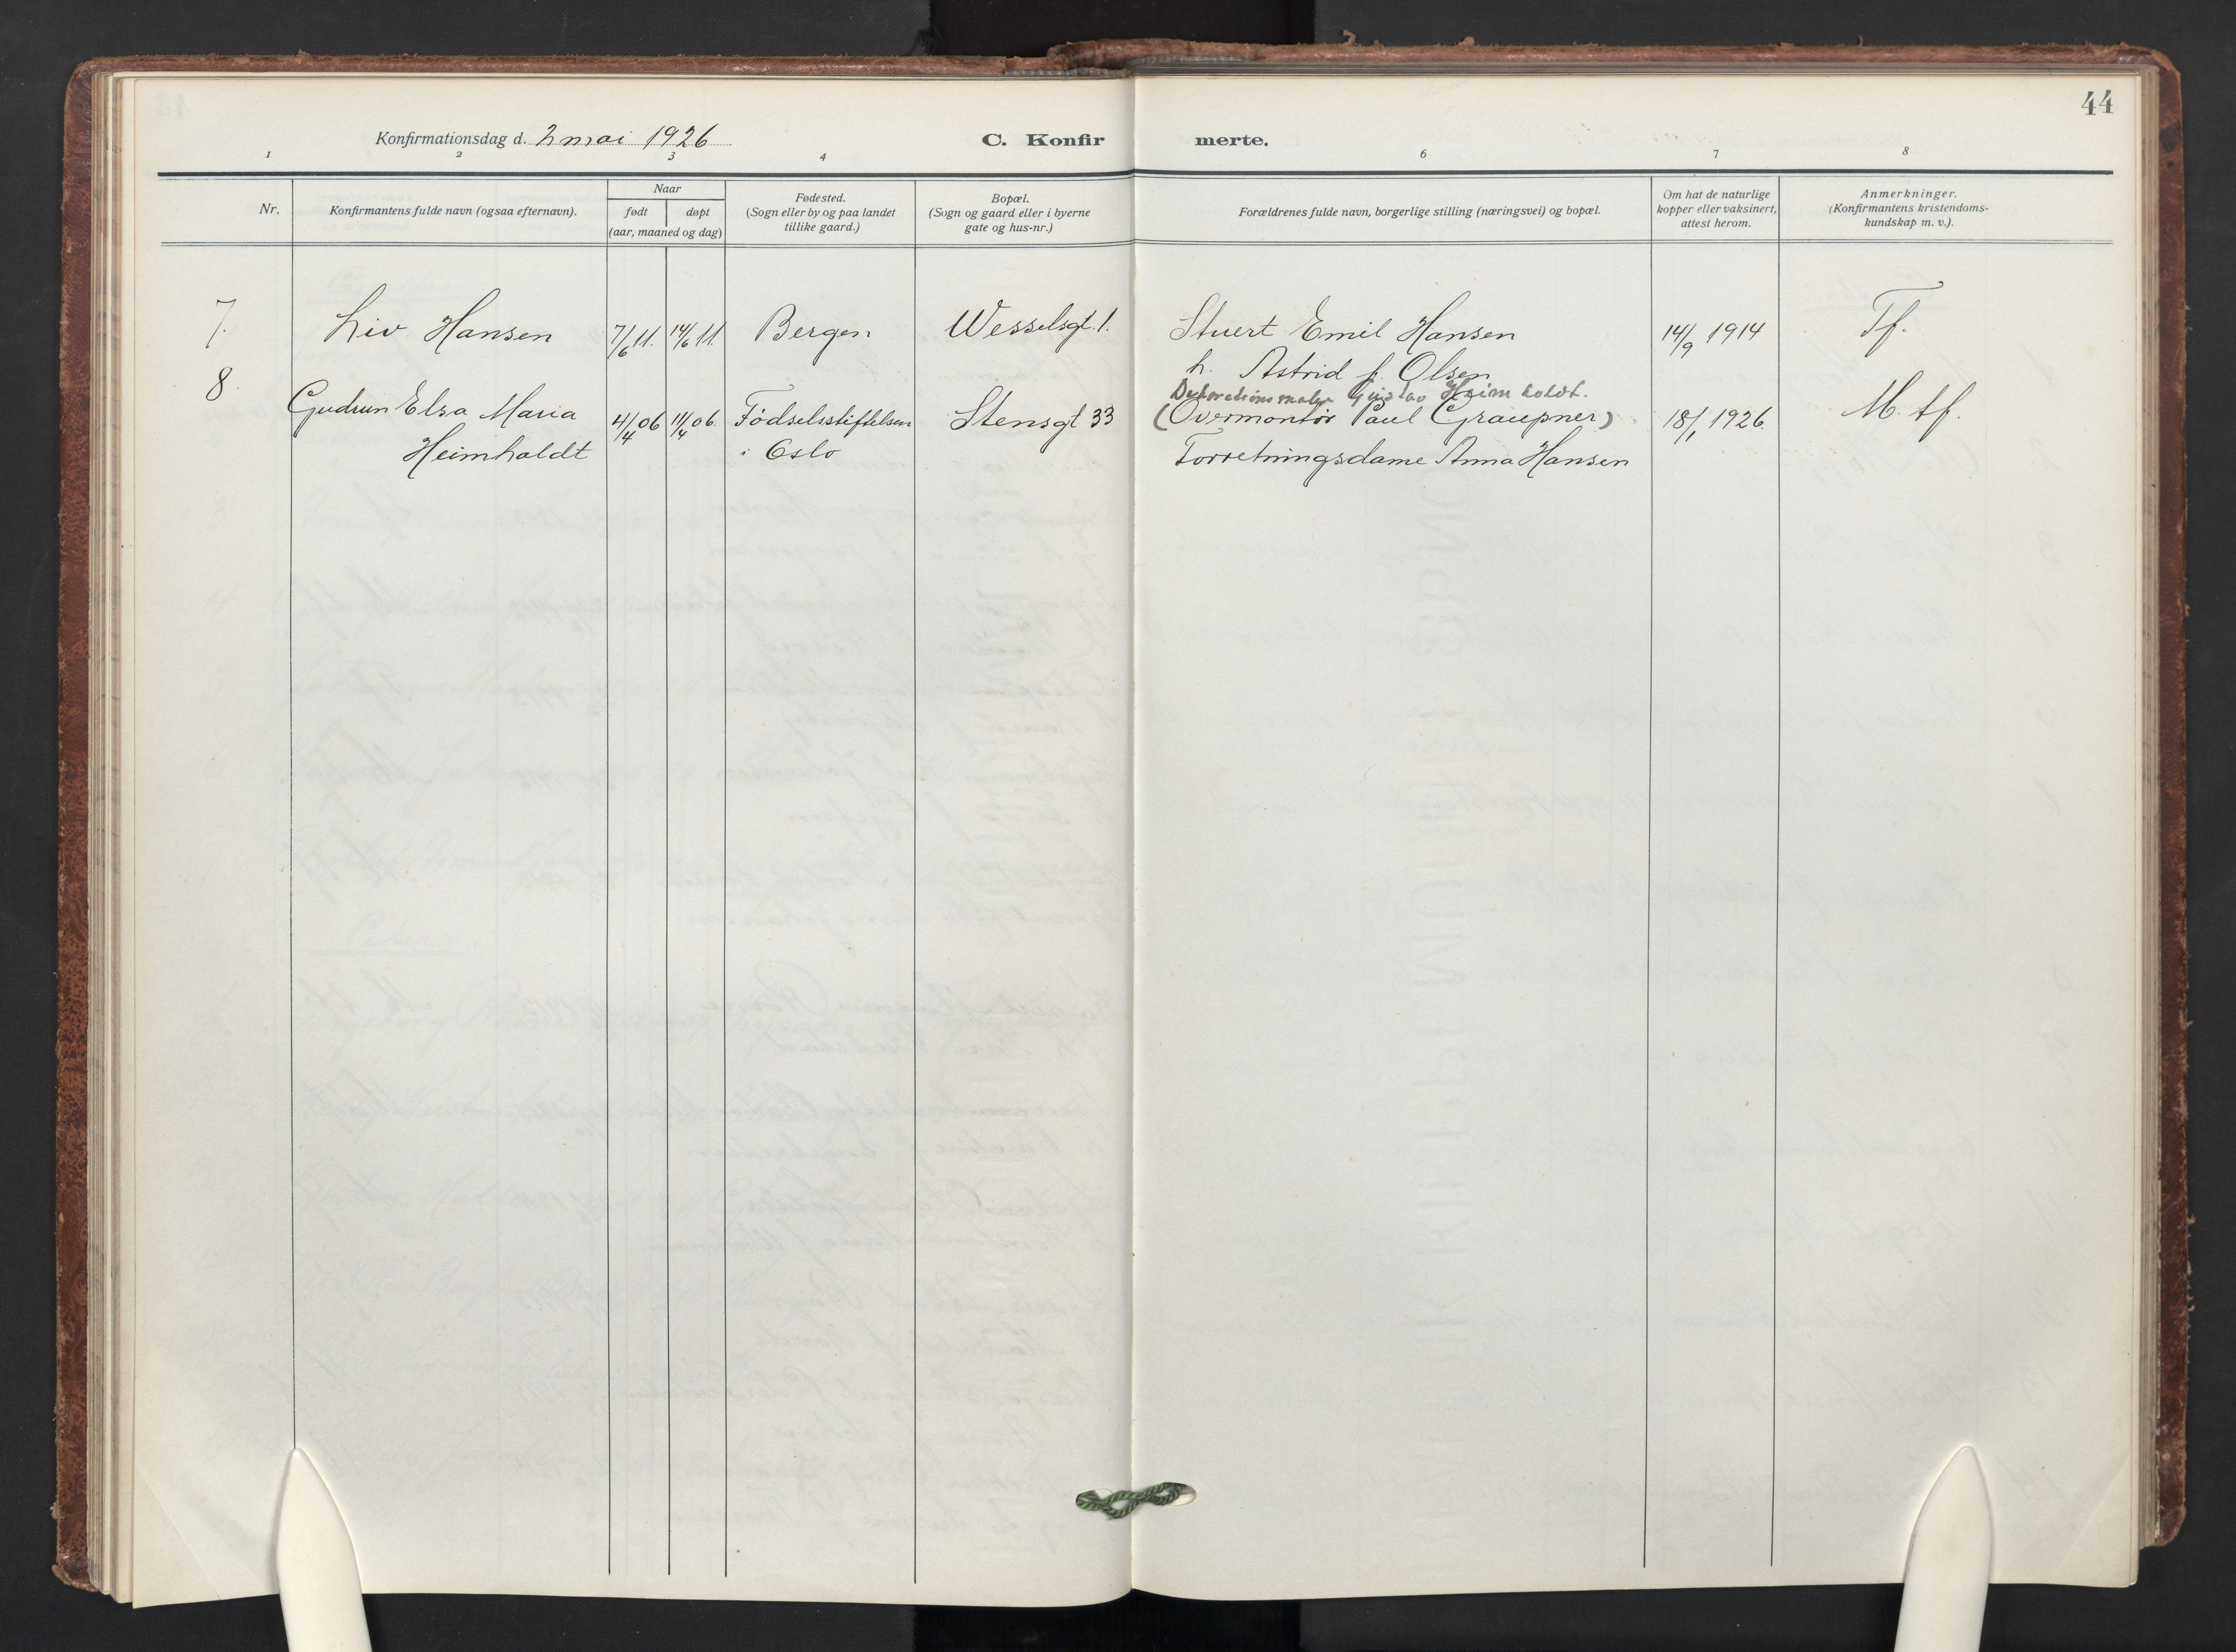 44
Konfirmationsdag d. 2 mai 1926 C. Konfirmerte.
1 2 3 4 6 7 8
Nr.
Konfirmantens fulde navn (ogsaa efternavn).
Naar
født døpt
(aar, maaned og dag)
Fødested.
(Sogn eller by og paa landet
tillike gaard.)
Bopæl.
(Sogn og gaard eller i byerne
gate og hus-nr.)
Forældrenes fulde navn, borgerlige stilling (næringsvei) og bopæl.
Om hat de naturlige
kopper eller vaksinert,
attest herom.
Anmerkninger.
(Konfirmantens kristendoms-
kundskap m. v.).
7. Liv Hansen 7/6 11. 14/6 11. Bergen Wesselsgt. 1. Stuert Emil Hansen 14/9 1914 Tf.
h. Astrid f. Olsen
Dekorationsmaler Gustav Heimholdt.
8. Gudrun Elsa Maria 4/4 06 11/4 06. Fødselsstiftelsen Stensgt 33 (Overmontør Paul Graupner) 18/1 1926. M. tf.
Heimholdt i Oslo Forretningsdame Anna Hansen